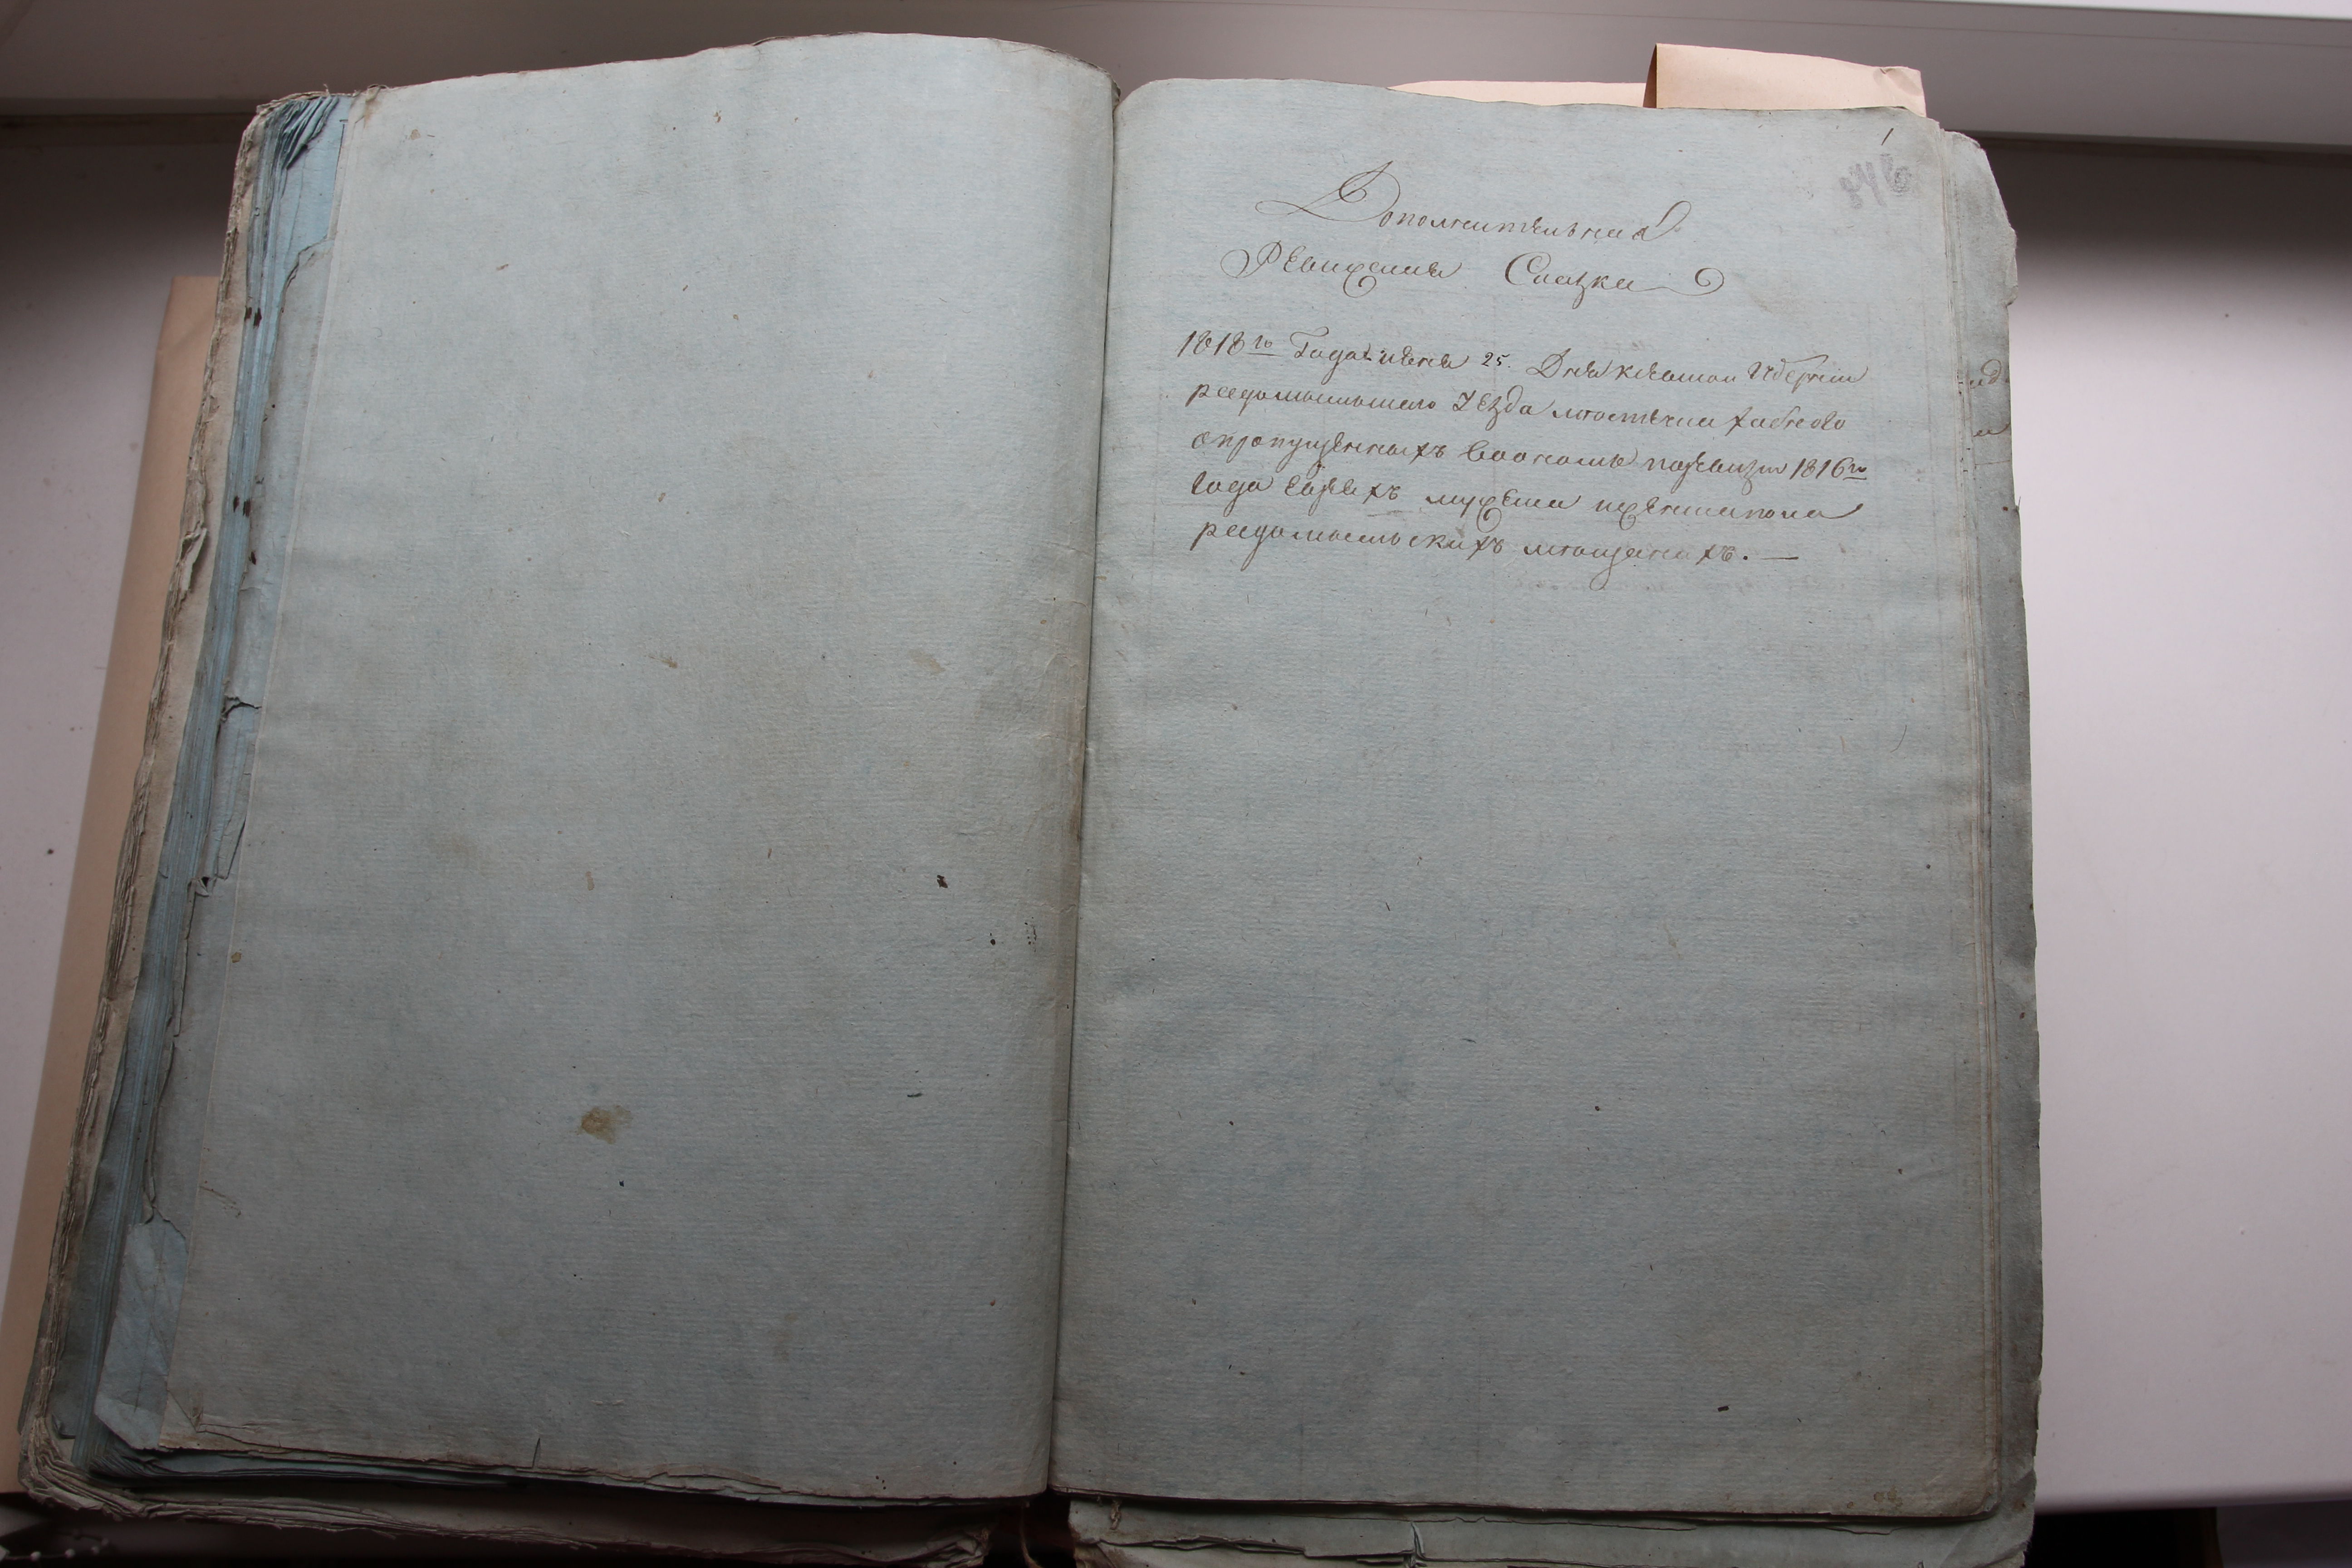 1
Дополнительная
Ревижская Сказка
1818го Года июня 25. Дня киевской губернии
радомысльского уезда местечка хабного
опропущенныхъ воономъ поревизи 1816го
года евреяхъ мужеска иженска пола
радомысльскихъ мещанахъ. —